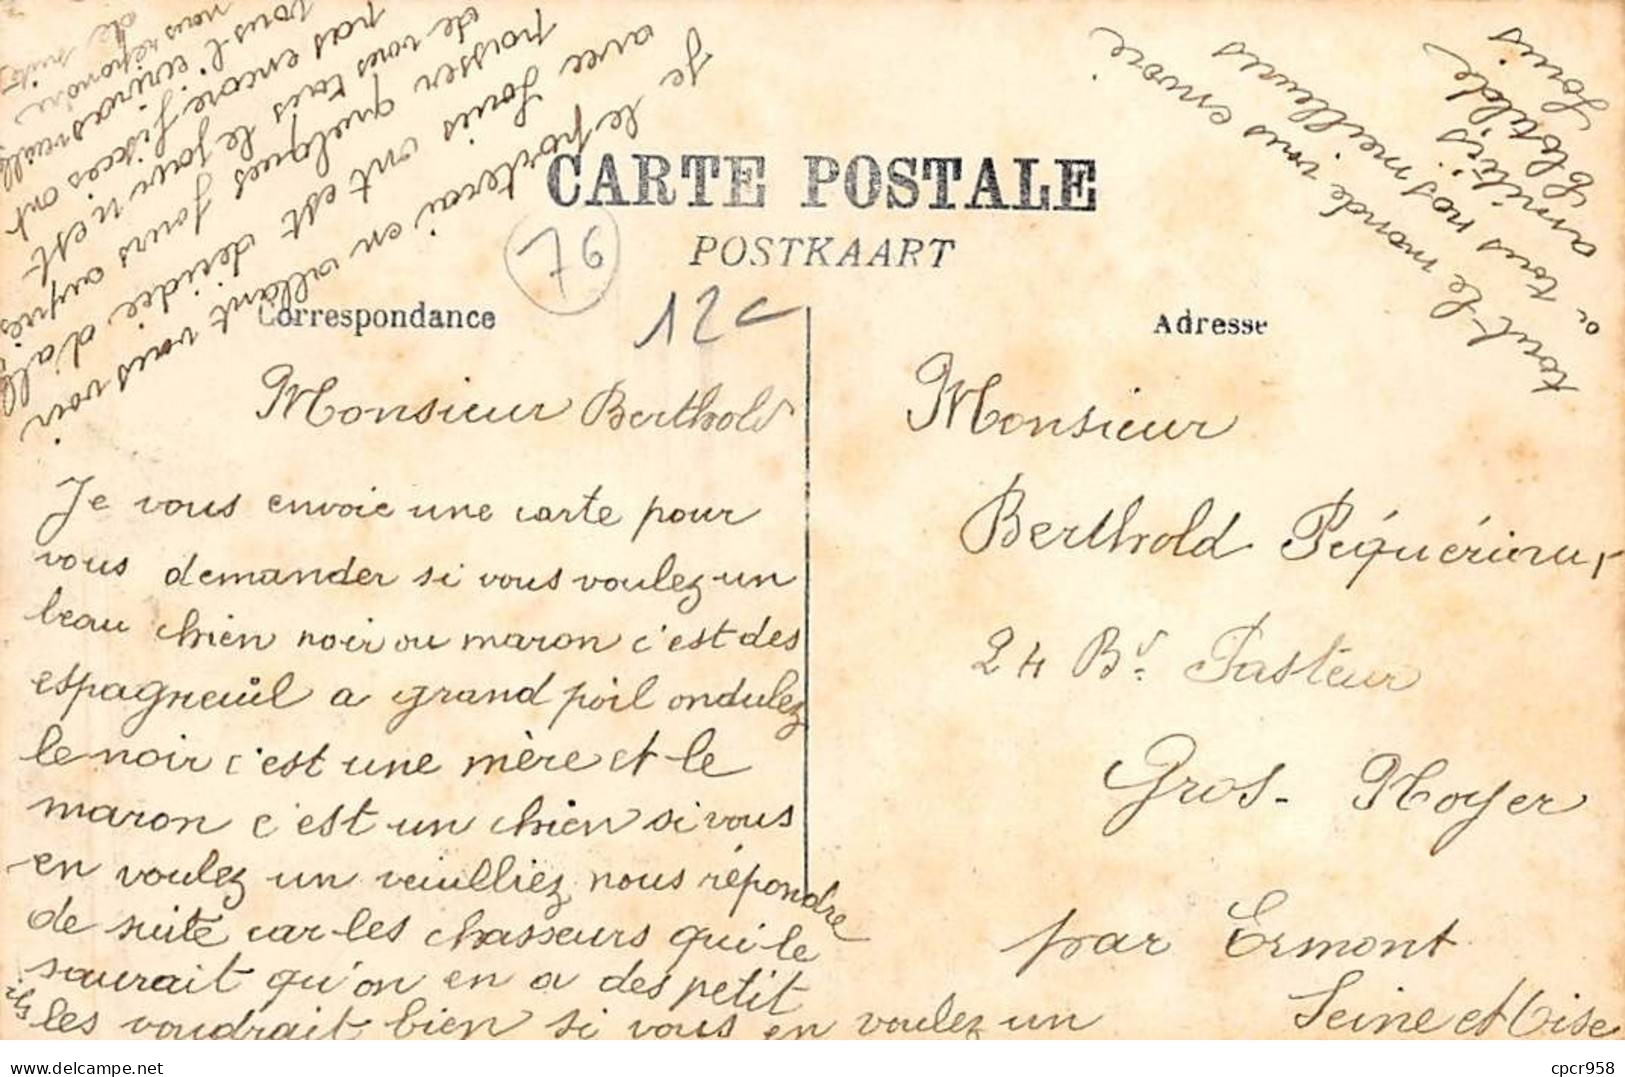 CARTE POSTALE
POSTKAART
76
12c
Correspondance
Adresse
Monsieur Berthold
Je vous envoie une carte pour
vous demander si vous voulez un
beau chien noir ou maron c'est des
espagneuil a grand poil ondulez
le noir c'est une mère et le
maron c'est un chien si vous
en voulez un veuilliez nous répondre
de suite car les chasseurs qui le
saurait qu'on en a des petit
ils les voudrait bien si vous en voulez un
Je le porterai en allant vous voir
avec Louis ont est decidee d'aller
passer quelques jours auprès
de vous tous le jour n'est
pas encore fixer ont
vous l'écriras
nous répondre
de suite
tout le monde vous envoie
à tous nos meilleures
amitiés
Clotilde
Louis
Monsieur
Berthold
24 Bd Pasteur
Gros-Noyer
par Ermont
Seine et Oise
delcampe.net
cpcr958